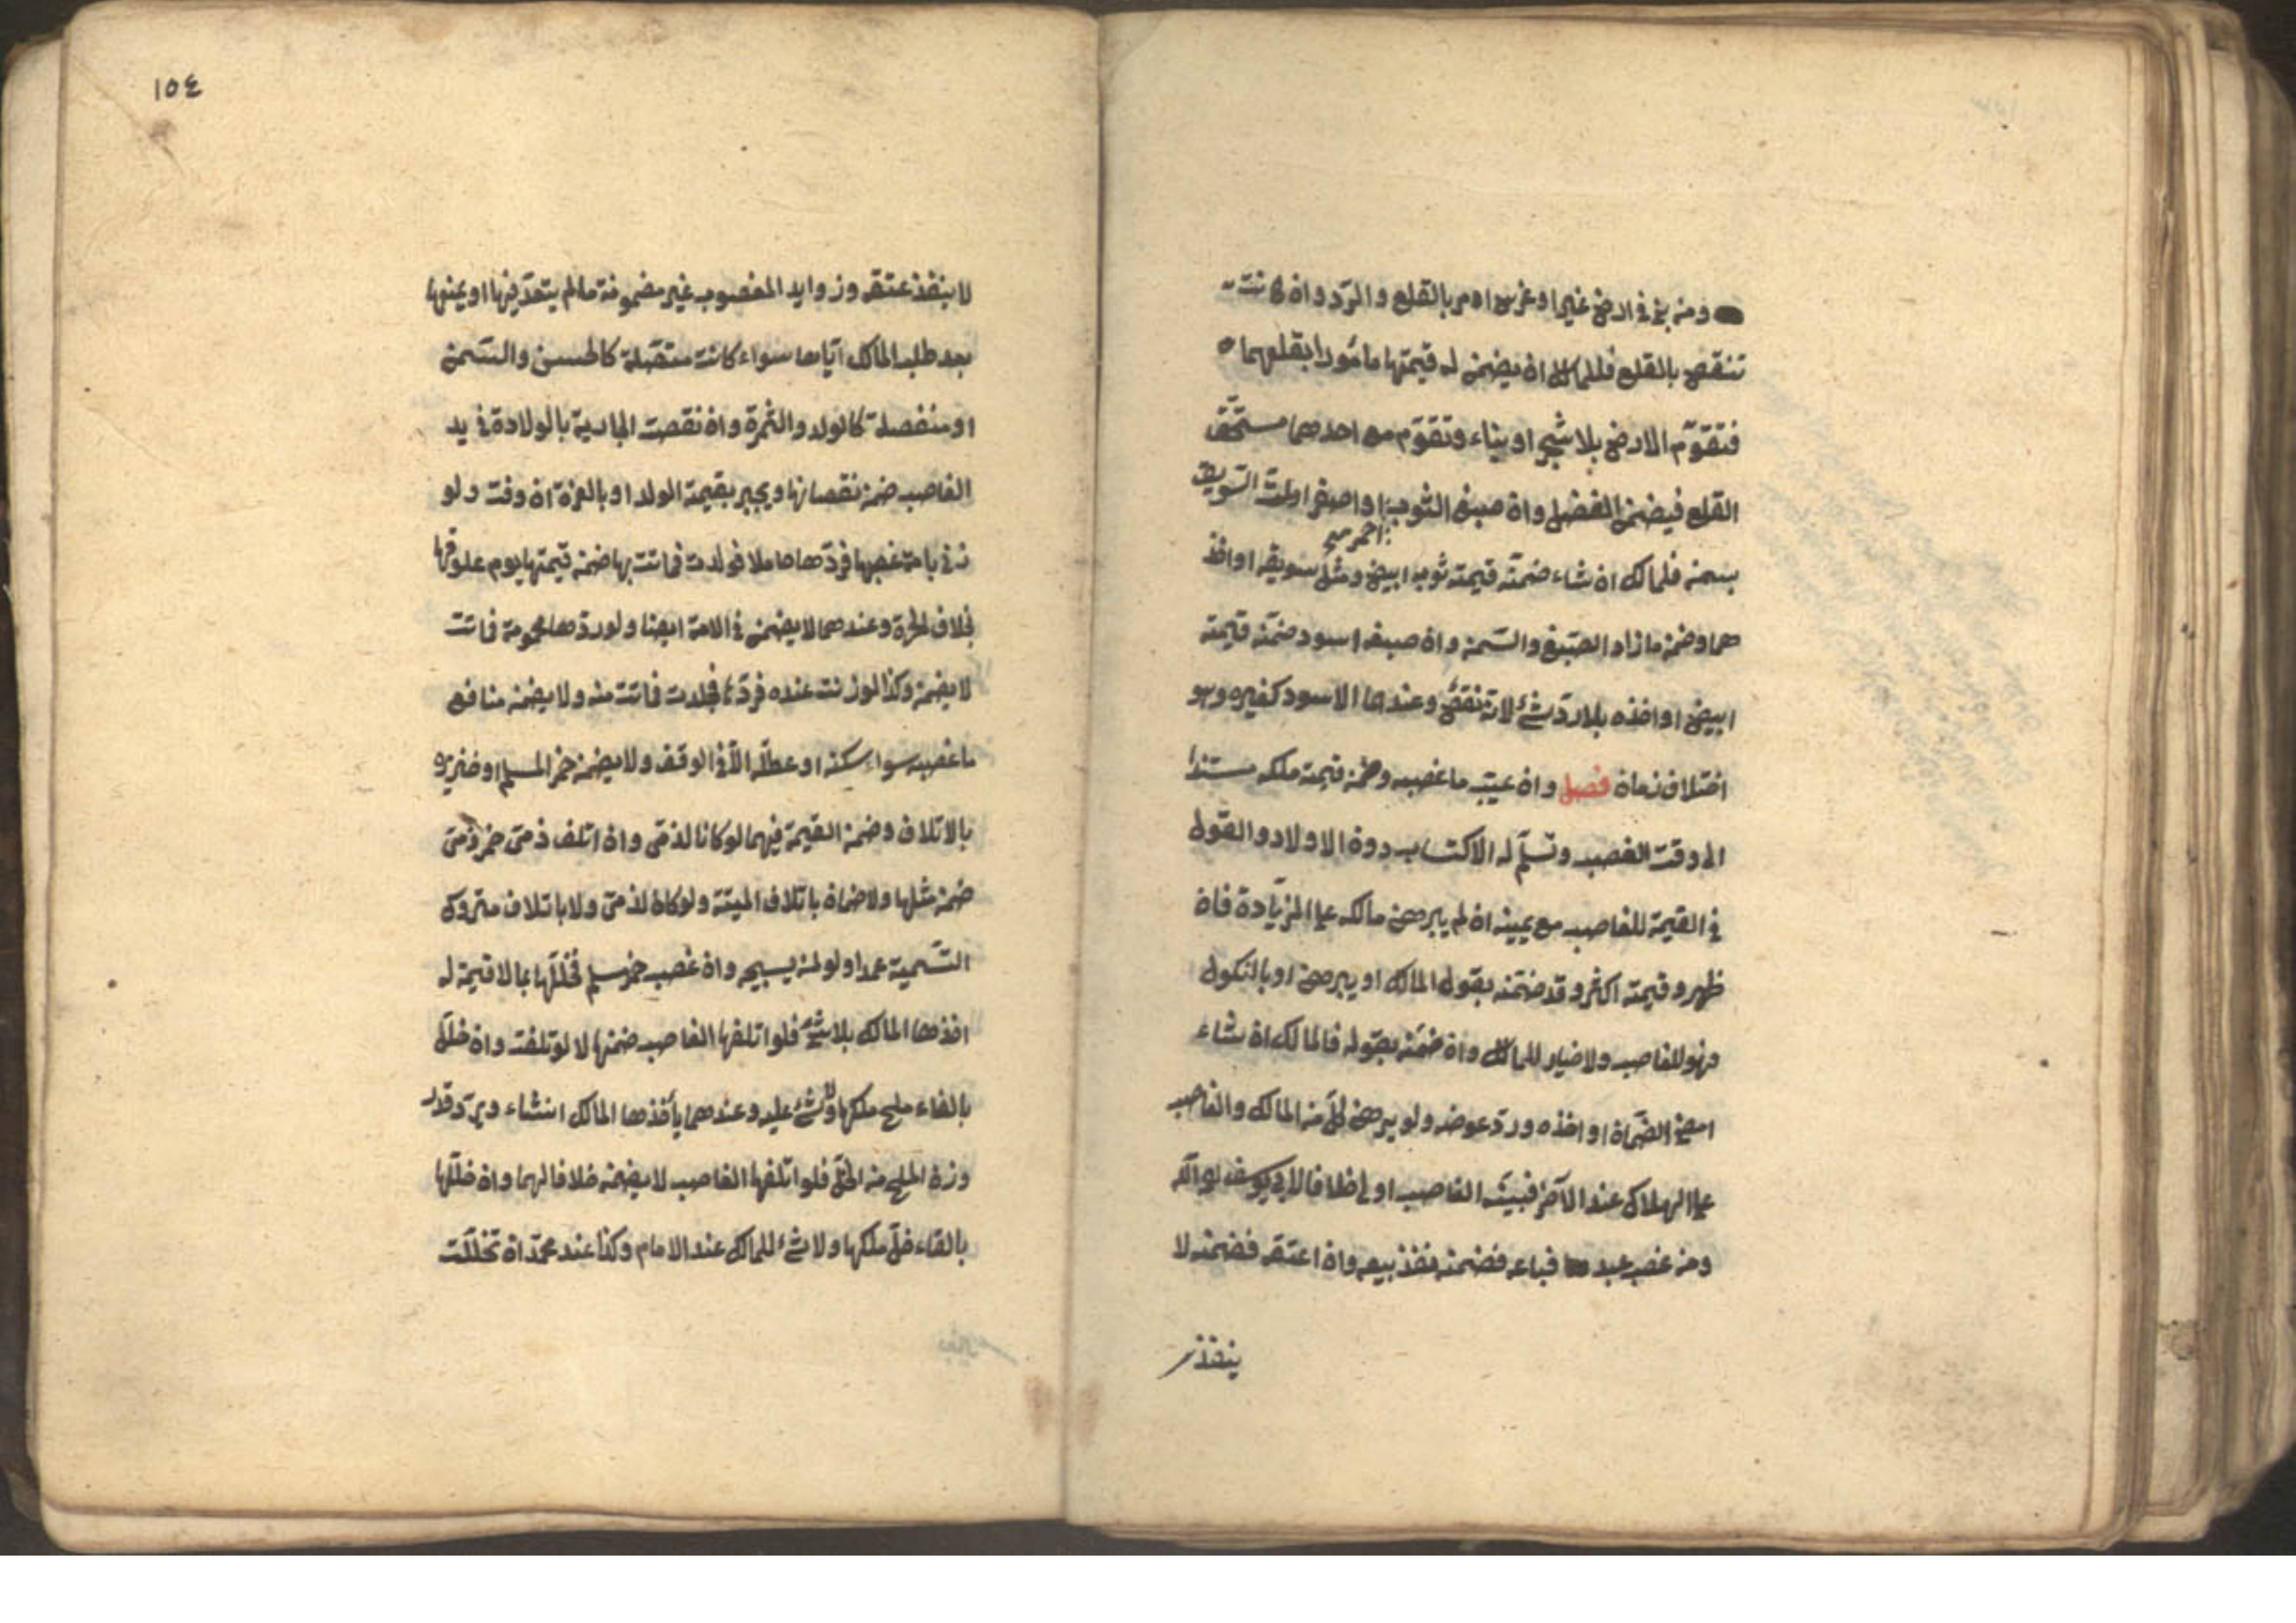 ومن بنى في ارض غيره او غرس امر بالقلع والرد وان كانت
تنقص بالقلع فللمالك ان يضمن له قيمتها مامورا بقلعهما
فتقوّم الارض بلا شجر او بناء وتقوّم مع احدهما مستحق
القلع فيضمن الفضل وان صبغ الثوب او اصفر او لتّ السّويق
احمر صح
بسمن فلمالك ان شاء ضمنّه قيمته ثوب ابيض ومثل سويقه او اخذ
هما وضمن ما زاد الصّبغ والسّمن وان صبغه اسود ضمنّه قيمته
ابيض او اخذه بلا ردّ شئ لانه نقص وعندهما الاسود كغيره وهو
اختلاف زمان فصل وان غيّب ما غصبه وضمن قيمته ملكه مستندا
الى وقت الغصب وتسلّم له الاكتساب دون الاولاد والقول
في القيمة للغاصب مع يمينه ان لم يبرهن مالكه على الزيادة فان
ظهر وقيمته اكثر وقد ضمنّه بقول المالك او ببرهن او بالنكول
فهو للغاصب ولا خيار للمالك وان ضمّنه بقوله فالمالك ان شاء
امضى الضّمان او اخذه وردّ عوضه ولو برهن كلّ من المالك والغاصب
على الهلاك عند الآخر فبينة الغاصب اولى خلافا لابي يوسف
ومن غصب عبدا فباعه فضمنه نفذ بيعه وان اعتقه فضمنه لا
ينفذ
١٥٤
لا ينفذ عتقه وزوايد المغصوب غير مضمونة ما لم يتعدّ فيها او يمنعها
بعد طلب المالك ايّاها سواء كانت متصلة كالحسن والسّمن
او منفصلة كالولد والثمرة وان نقصت الجارية بالولادة في يد
الغاصب ضمن نقصانها ويجبر بقيمة الولد او بالغرّة ان وفت ولو
زنى بامة غصبها فردّها حاملا فولدت فماتت بها ضمن قيمتها يوم علوقها
بخلاف الحرّة وعندهما لا يضمن في الامة ايضا ولو ردّها محمومة فماتت
لا يضمن وكذا لو زنت عنده فردّها فجلدت فماتت منه ولا يضمن منافع
ما غصبه سواء سكنه او عطلّه الّا في الوقف ولا يضمن خمر المسلم او خنزيره
بالاتلاف وضمن القيمة فيهما لو كانا لذمّى وان اتلف ذمّى خمر ذمّى
ضمن مثلها ولا ضمان باتلاف الميتة ولو كان لذمّى ولا باتلاف متروك
التّسمية عمدا ولو لمن يبيحه وان غصب خمر مسلم فخلّلها بما لا قيمة له
اخذها المالك بلا شئ فلو اتلفها الغاصب ضمنها لا لو تلفت وان خلّل
بالقاء ملح ملكها ولا شئ عليه وعندهما يأخذها المالك ان شاء ويردّ قدر
وزن الملح من الخلّ فلو اتلفها الغاصب لا يضمن خلافا لهما وان خلّلها
بالقاء خلّ ملكها ولا شئ للمالك عند الامام وكذا عند محمّد ان تخلّلت